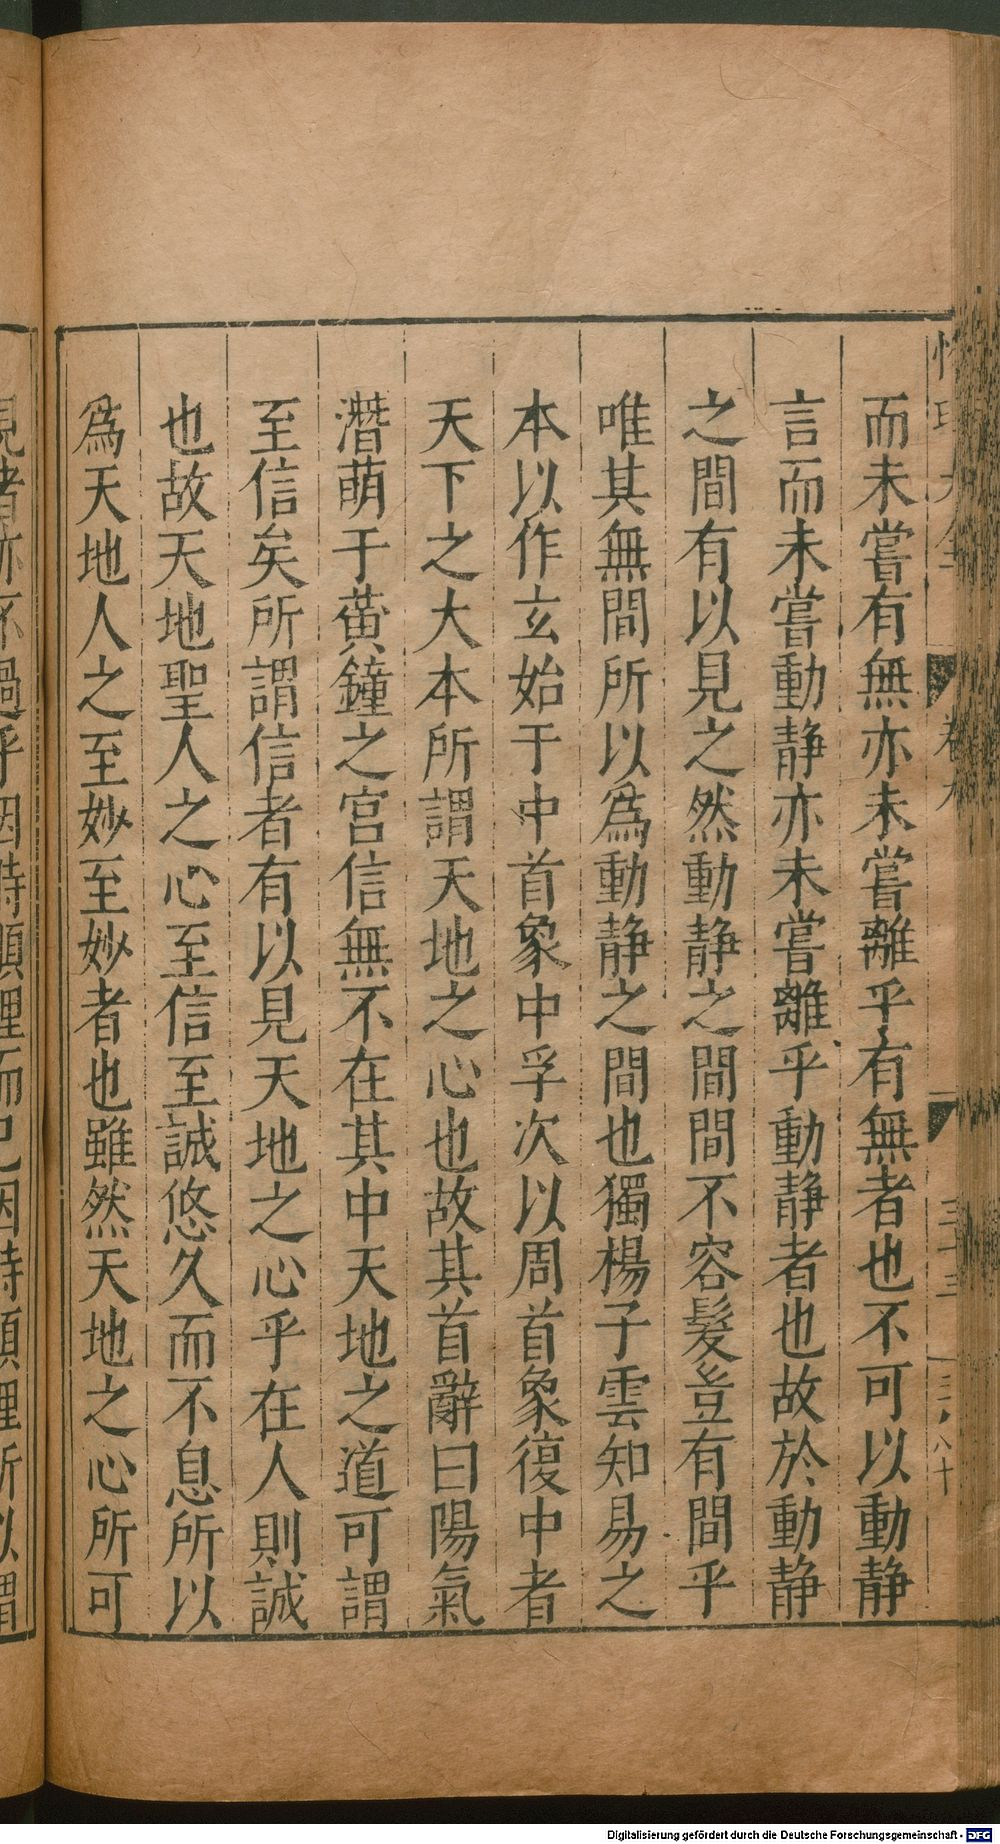 而未嘗有無亦未嘗離乎有無者也不可以動静
言而未嘗動静亦未嘗離乎動静者也故於動静
之間有以見之然動静之間間不容髮豈有間乎
唯其無間所以為動静之間也獨楊子雲知易之
本以作玄始于中首象中孚次以周首象復中者
天下之大本所謂天地之心也故其首辭曰陽氣
潛萌于黄鐘之宮信無不在其中天地之道可謂
至信矣所謂信者有以見天地之心乎在人則誠
也故天地聖人之心至信至誠悠久而不息所以
為天地人之至妙至妙者也雖然天地之心所可
見者亦不過乎因時順理而已因時順理所以謂
卷九
三十三
Digitalisierung gefördert durch die Deutsche Forschungsgemeinschaft - DFG